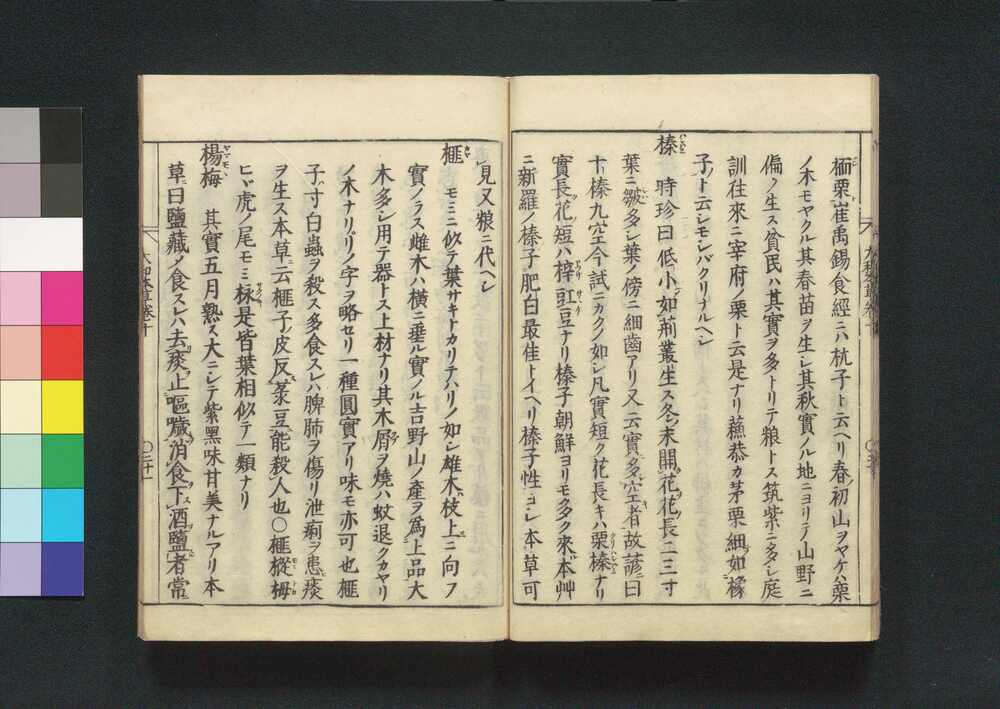 栭栗崔禹錫食經ニハ杭子ト云ヘリ春初山ヲヤケハ栗
ノ木モヤクル其春苗ヲ生シ其秋實ノル地ニヨリテ山野ニ
偏ク生ス貧民ハ其實ヲ多トリテ粮トス筑紫ニ多シ庭
訓往來ニ宰府ノ栗ト云是ナリ蘓恭カ茅栗細如橡
子ト云シモシバクリナルヘシ
榛 時珍曰低小如荊叢生ス冬末開花花長二三寸
葉ニ皺多シ葉ノ傍ニ細齒アリ又云實多空者故諺曰
十榛九空今試ニカクノ如シ凡實短ク花長キハ栗榛ナリ
實長花短ハ梓豇豆ナリ榛子朝鮮ヨリモ多ク來本艸
ニ新羅ノ榛子肥白最佳トイヘリ榛子性ヨシ本草可
見又粮ニ代ヘシ
榧 モミニ似テ葉サキトカリテハリノ如シ雄木ハ枝上ニ向フ
實ノラス雌木ハ橫ニ垂ル實ノル吉野山ノ產ヲ爲上品大
木多シ用テ器トス上材ナリ其木屑ヲ燒ハ蚊退クカヤリ
ノ木ナリリノ字ヲ略セリ一種圓實アリ味モ亦可也榧
子ハ寸白蟲ヲ殺ス多食スレハ脾肺ヲ傷リ泄痢ヲ患痰
ヲ生ス本草ニ云榧子皮反菉豆能殺人也〇榧樅栂
ヒバ虎ノ尾モミ 是皆葉相似テ一類ナリ
楊梅 其實五月熟ス大ニシテ紫黑味甘美ナルアリ本
草曰鹽藏ノ食スレハ去痰止嘔噦消食下酒鹽者常
大和本草卷十
〇二十一